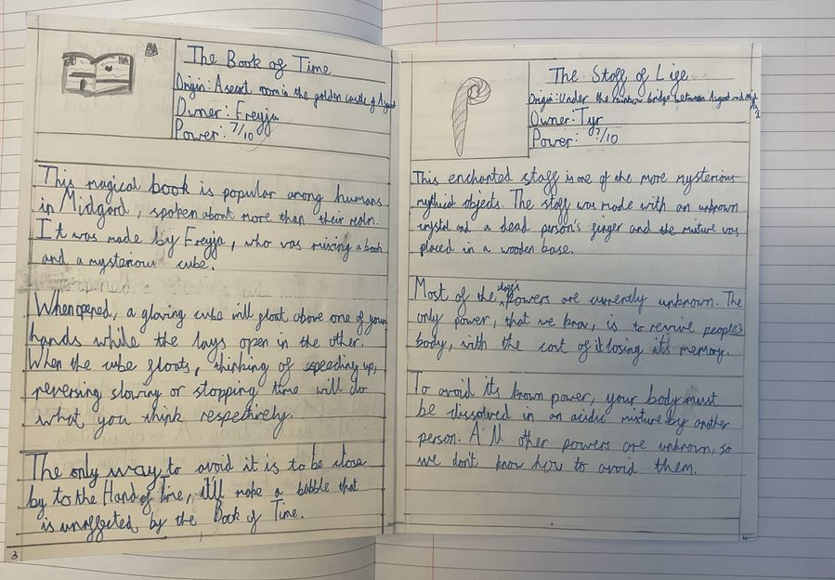 The Book of Time
Origin: A secret room in the golden castle of Asgard
Owner: Freyja
Power: 7/10
This magical book is popular among humans
in Midgard, spoken about more than their realm.
It was made by Freyja, who was mixing a book
and a mysterious cube.
When opened, a glowing cube will float above one of your
hands while the lays open in the other.
When the cube floats, thinking of speeding up,
reversing slowing or stopping time will do
what you think respectively.
The only way to avoid it is to be close
by to the Hand of Time, it'll make a bubble that
is unaffected by the Book of Time.
3
The Staff of Life
Origin: Under the rainbow bridge between Asgard and
Owner: Tyr
Power: ?/10
This enchanted staff is one of the more mysterious
mythical objects. The staff was made with an unknown
crystal and a dead person's finger and the mixture was
placed in a wooden base.
Most of the staff's powers are currently unknown. The
only power, that we know, is to revive people's
body, with the cost of it losing its memory.
To avoid its known power, your body must
be dissolved in an acidic mixture by another
person. All other powers are unknown, so
we don't know how to avoid them.
4